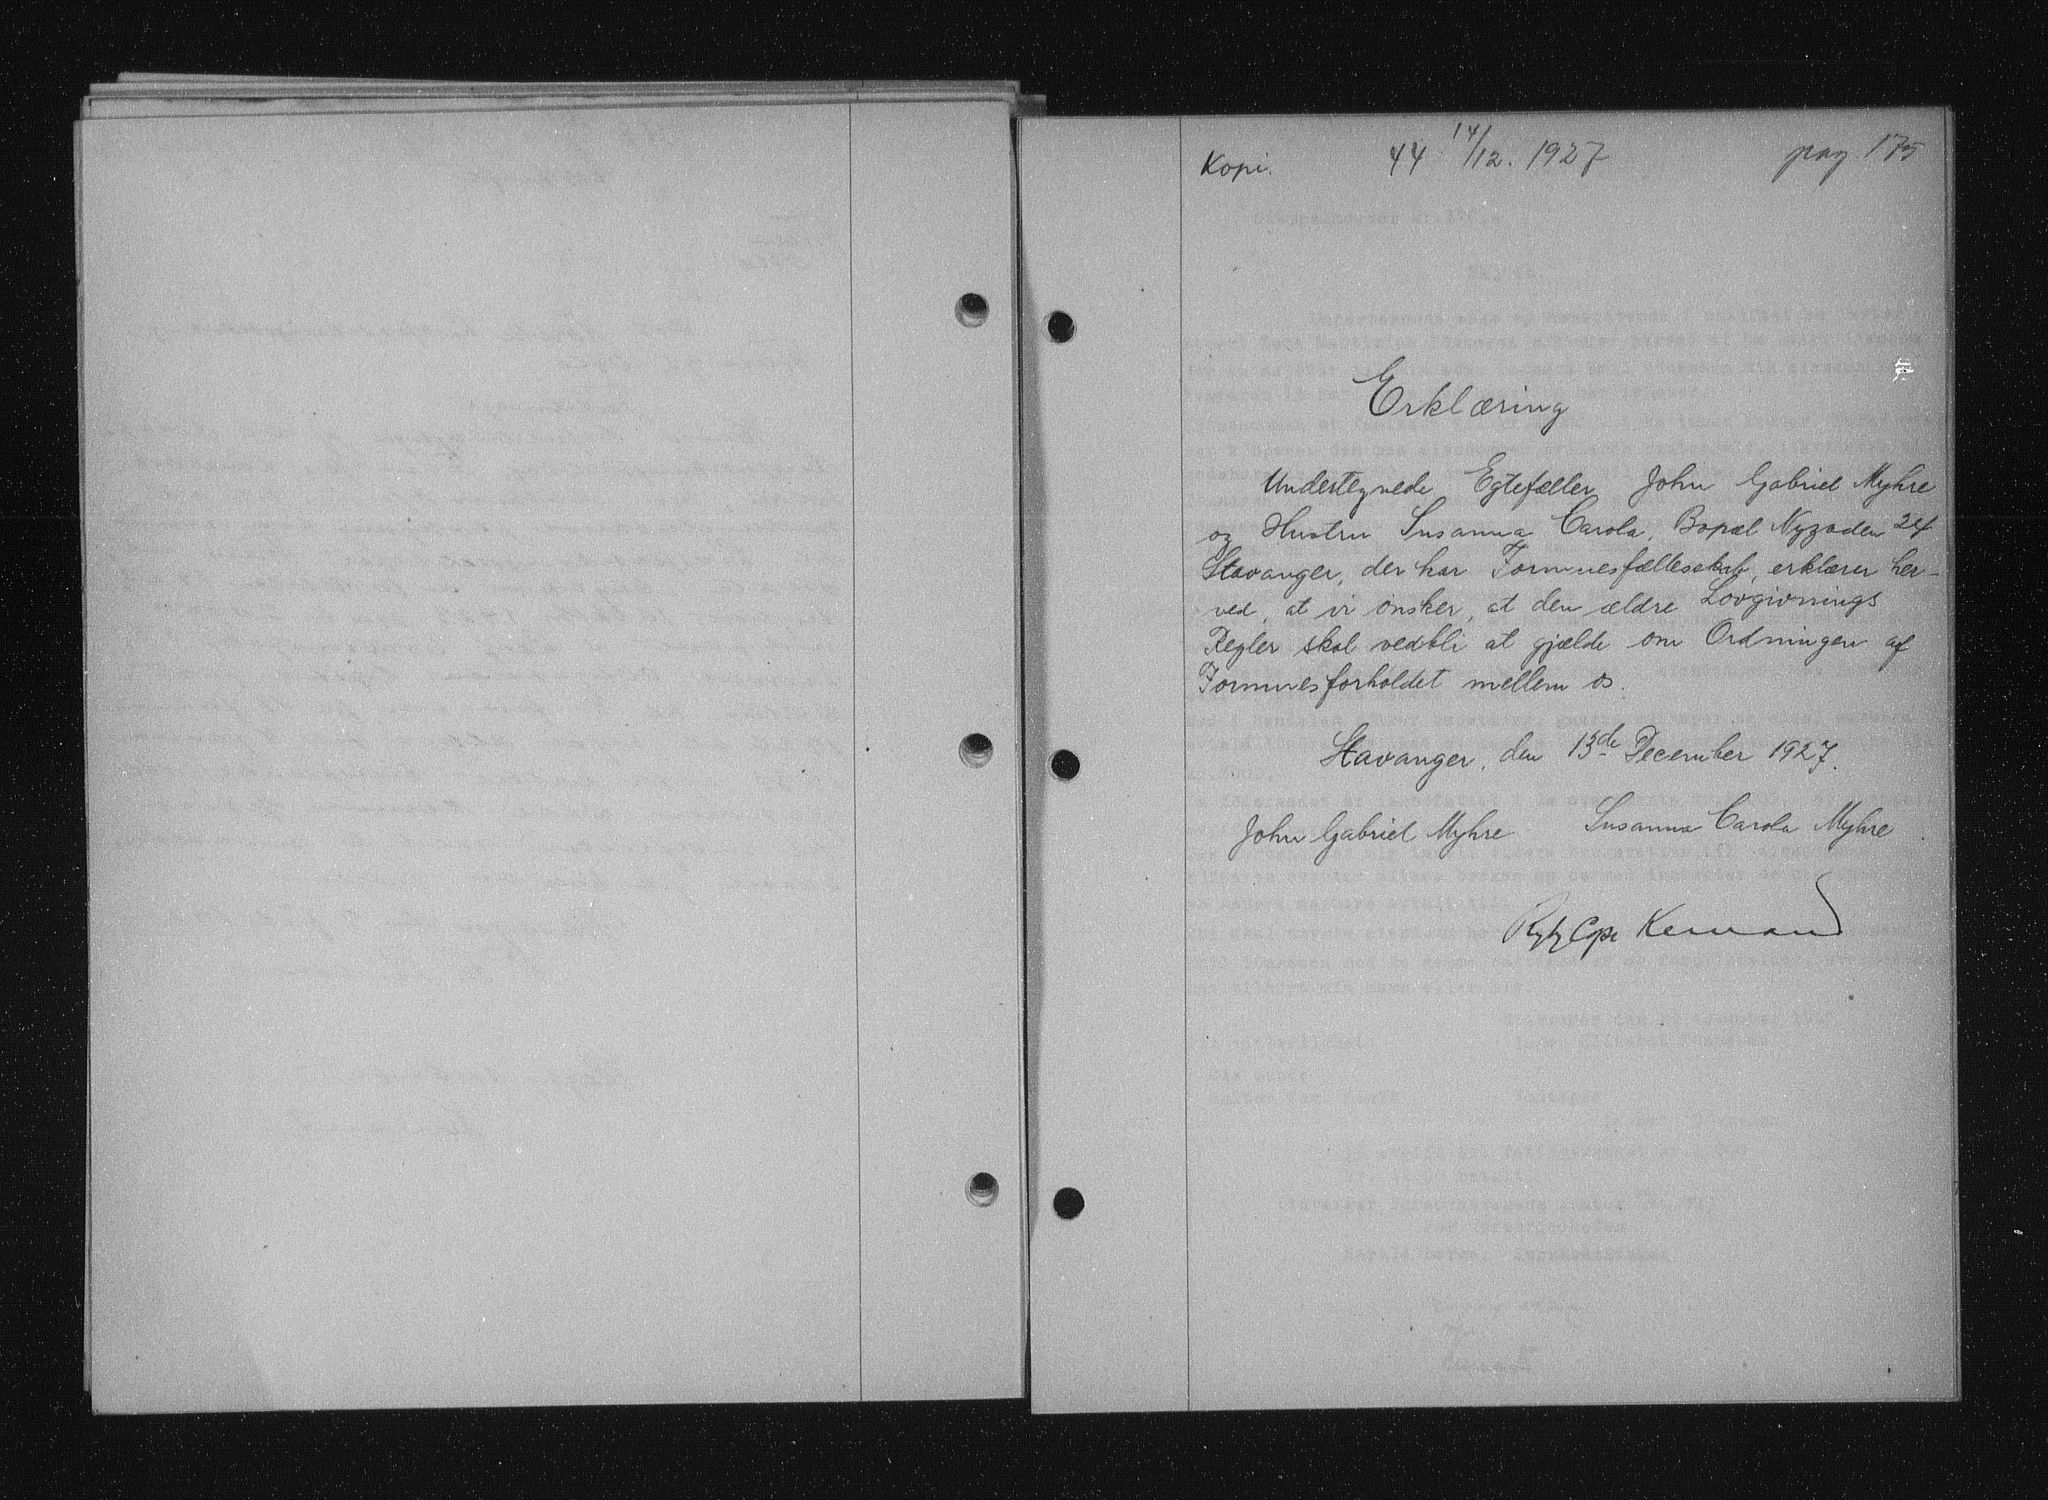 Kopi. 44 14/12. 1927 pag. 175
Erklæring
Undertegnede Egtefæller John Gabriel Myhre
og Hustru Susanna Carola, Bopæl Nygaden 24
Stavanger, der har Formuesfællesskab, erklærer her-
ved, at vi ønsker, at den ældre Lovgivnings
Regler skal vedbli at gjælde om Ordningen af
Formuesforholdet mellem os.
Stavanger, den 13de December 1927.
John Gabriel Myhre Susanna Carola Myhre